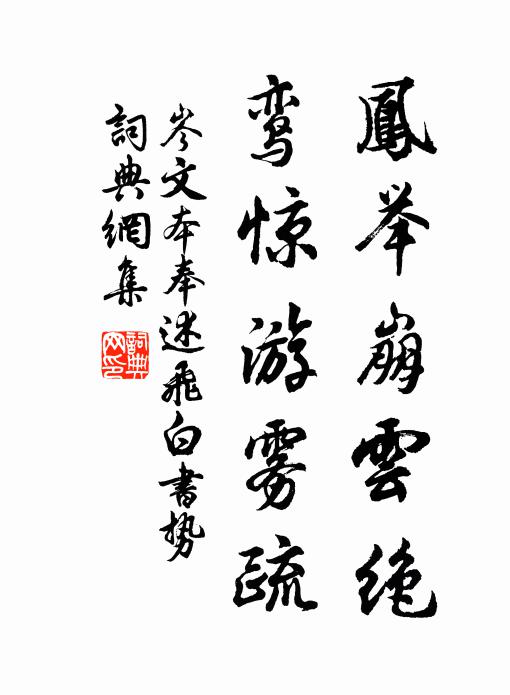 鳳举崩雲绝
鸾惊游雾疏
岑文本奉述飛白書勢
詞典網集
詞典網印